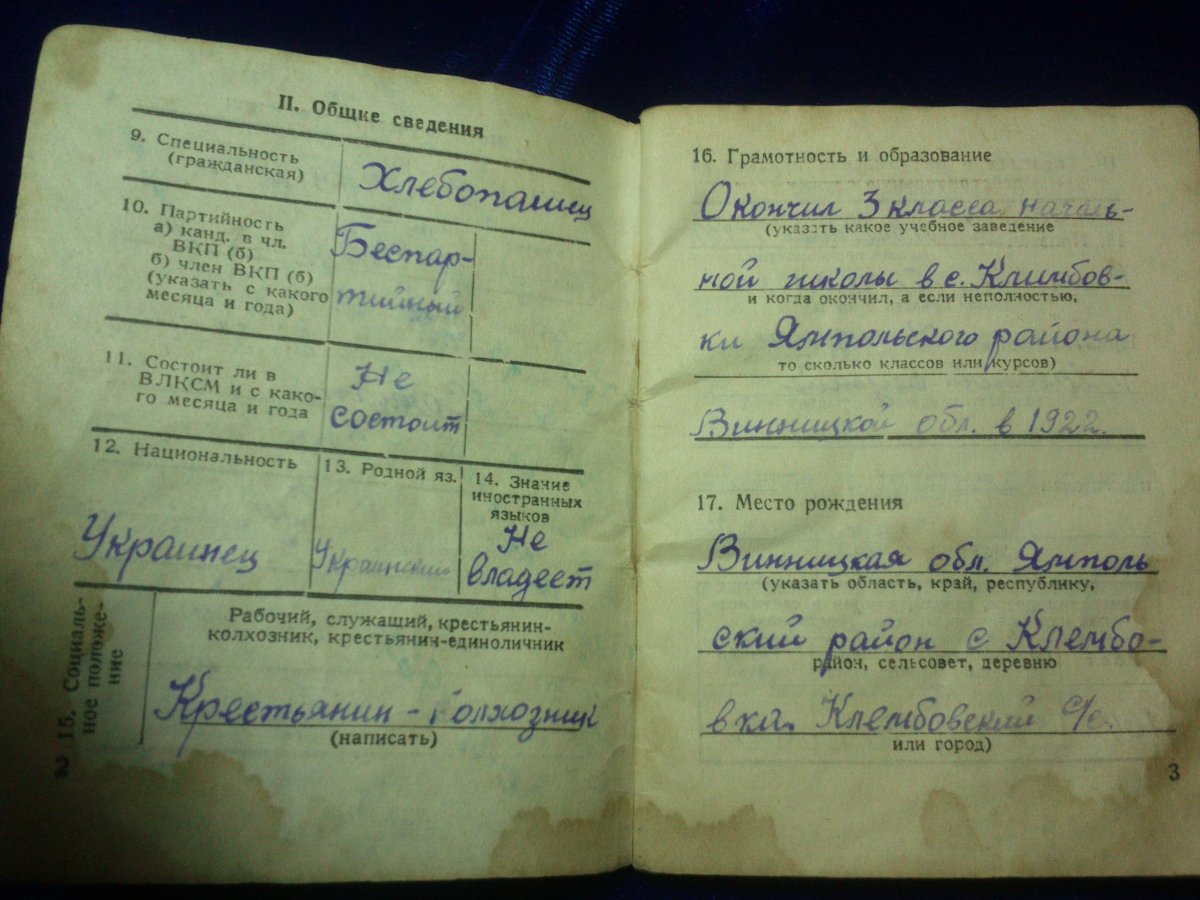 II. Общие сведения
9. Специальность
(гражданская)
Хлебопашец
10. Партийность
а) канд. в чл.
ВКП (б)
б) член ВКП (б)
(указать с какого
месяца и года)
Беспар-
тийный
11. Состоит ли в
ВЛКСМ и с како-
го месяца и года
Не
состоит
12. Национальность
Украинец
13. Родной яз.
Украинский
14. Знание
иностранных
языков
Не
владеет
15. Социаль-
ное положе-
ние
Рабочий, служащий, крестьянин-
колхозник, крестьянин-единоличник
Крестьянин - колхозник
(написать)
2
16. Грамотность и образование
Окончил 3 класса началь-
(указать какое учебное заведение
ной школы в с. Климбов-
и когда окончил, а если неполностью,
ки Ямпольского района
то сколько классов или курсов)
Винницкой обл. в 1922.
17. Место рождения
Винницкая обл. Ямполь
(указать область, край, республику,
ский район с Клембо-
район, сельсовет, деревню
вка. Клембовский с/с.
или город)
3